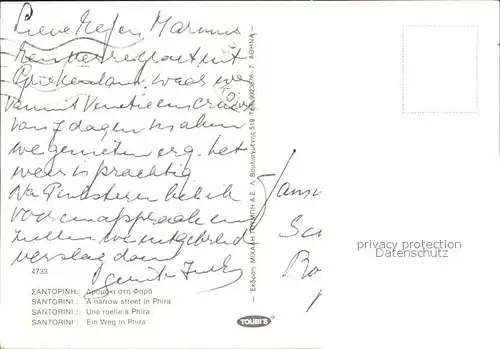 Lieve Mefen Marinus
Een perrefkaart uit
Griekenland, waar we
vanuit Venetie een cruise
van 7 dagen maken
we genieten erg. het
weer is prachtig
Na Pinksteren bel ik
voor een afspraak en
zullen we uitgebreid
verslag doen
4733
ΣΑΝΤΟΡΙΝΗ: Δρομάκι στη Φηρά
SANTORINI : A narrow street in Phira
SANTORINI : Une ruelle à Phira
SANTORINI : Ein Weg in Phira
TOUBI'S
— Εκδοση ΜΙΧΑΛΗ ΤΟΥΜΠΗ Α.Ε. Λ. Βουλιαγμένης 519 Τηλ. 9923876 - 7 ΑΘΗΝΑ —
privacy protection
Datenschutz